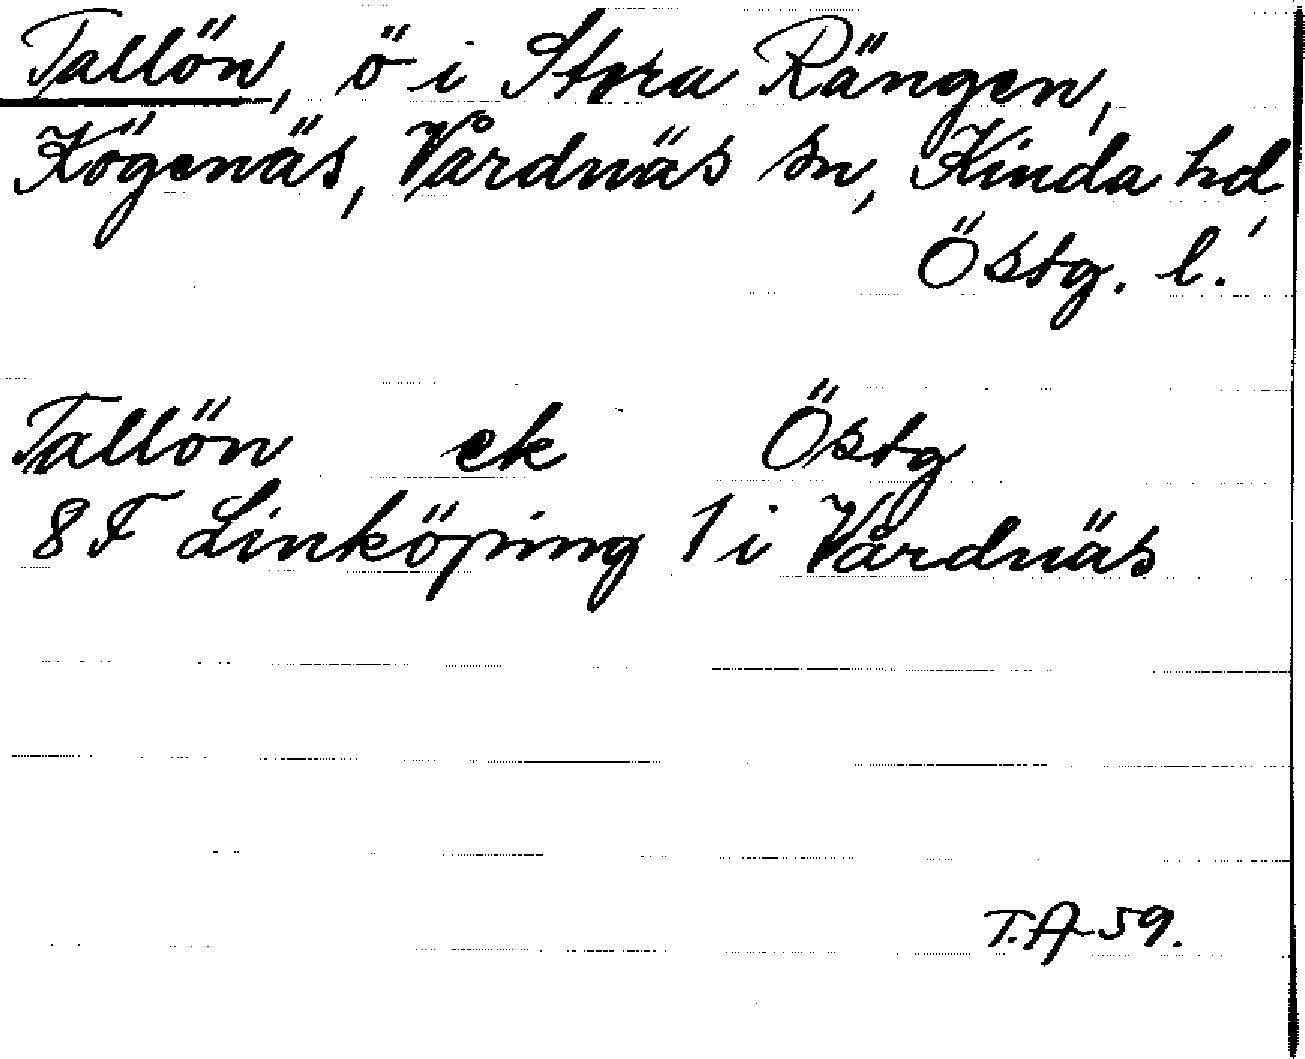 Tallön, ö i Stora Rängen,
Kögenäs, Vårdnäs sn, Kinda hd,
Östg. l.
Tallön ek Östg
8F Linköping 1 i Vårdnäs
T.A-59.